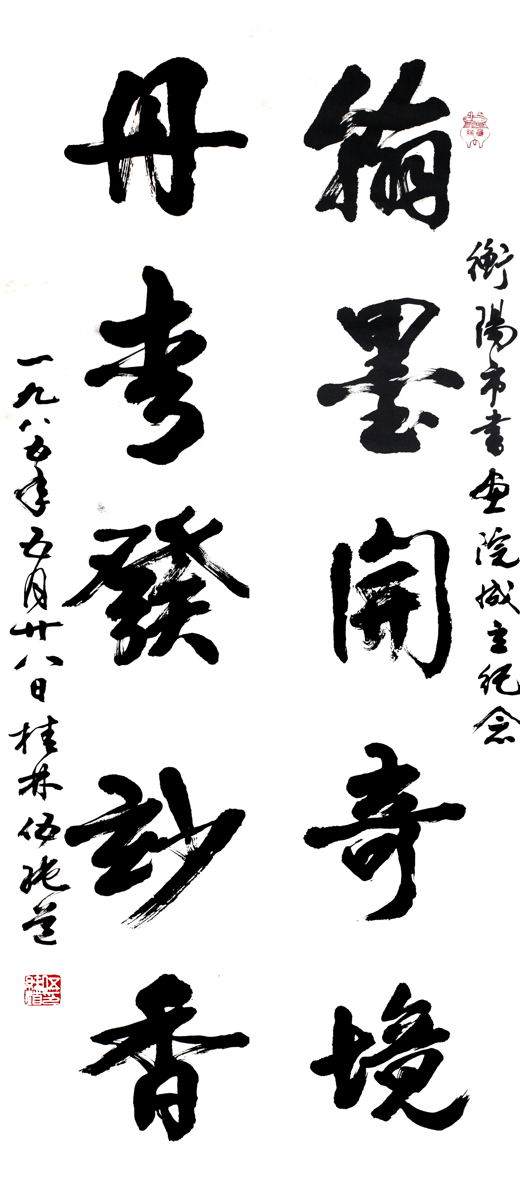 衡陽市書画院成立紀念
翰墨開奇境
丹青發玅香
一九八五年五月廿八日桂林伍純道